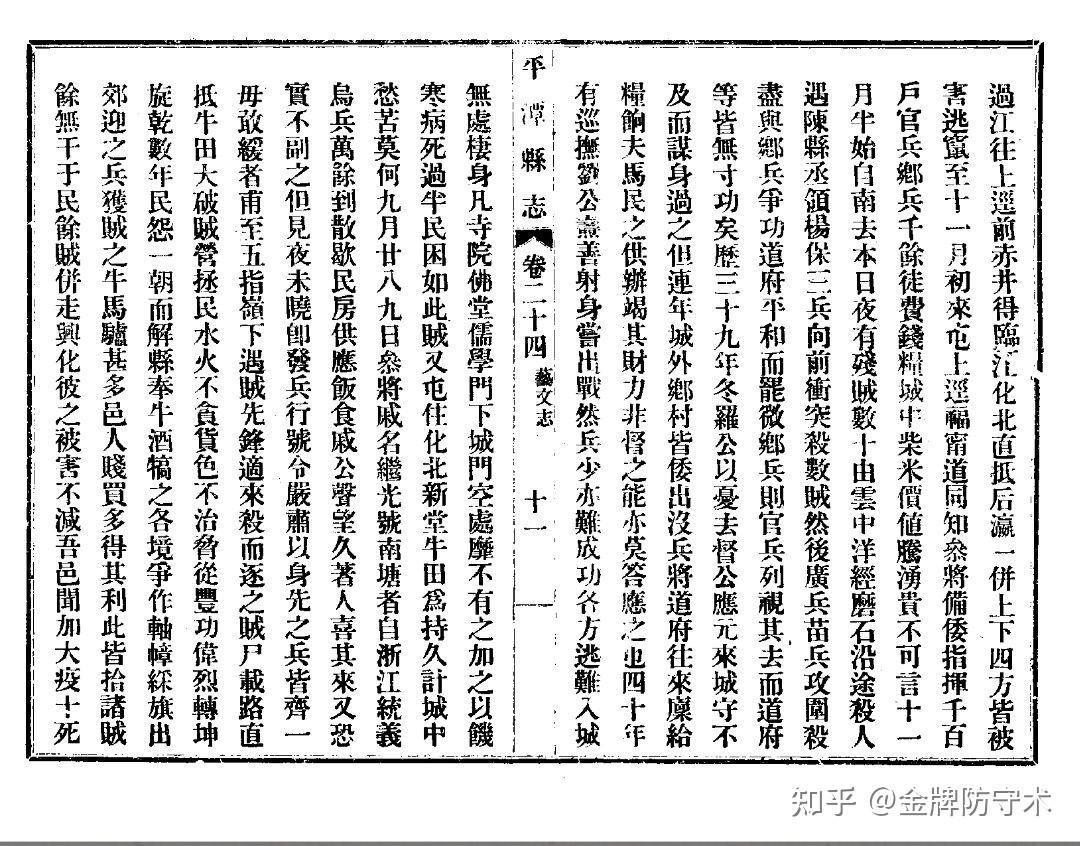 過江往上逕前赤井得臨江化北直抵后瀛一併上下四方皆被
害逃竄至十一月初來屯上逕福甯道同知叅將備倭指揮千百
戶官兵鄉兵千餘徒費錢糧城中柴米價値騰湧貴不可言十一
月半始自南去本日夜有殘賊數十由雲中洋經磨石沿途殺人
遇陳縣丞領楊保三兵向前衝突殺數賊然後廣兵苗兵攻圍殺
盡與鄉兵爭功道府平和而罷微鄉兵則官兵列視其去而道府
等皆無寸功矣歷三十九年冬羅公以憂去督公應元來城守不
及而謀身過之但連年城外鄉村皆倭出沒兵將道府往來廩給
糧餉夫馬民之供辦竭其財力非督之能亦莫答應之也四十年
有巡撫劉公燾善射身嘗出戰然兵少亦難成功各方逃難入城
平潭縣志 卷二十四 藝文志 十一
無處棲身凡寺院佛堂儒學門下城門空處靡不有之加之以饑
寒病死過半民困如此賊又屯住化北新堂牛田爲持久計城中
愁苦莫何九月廿八九日叅將戚名繼光號南塘者自浙江統義
烏兵萬餘到散歇民房供應飯食戚公聲望久著人喜其來又恐
實不副之但見夜未曉卽發兵行號令嚴肅以身先之兵皆齊一
毋敢緩者甫至五指嶺下遇賊先鋒適來殺而逐之賊尸載路直
抵牛田大破賊營拯民水火不貪貨色不治脅從豐功偉烈轉坤
旋乾數年民怨一朝而解縣奉牛酒犒之各境爭作軸幛綵旗出
郊迎之兵獲賊之牛馬驢甚多邑人賤買多得其利此皆拾諸賊
餘無干于民餘賊併走興化彼之被害不減吾邑聞加大疫十死
知乎 @金牌防守术